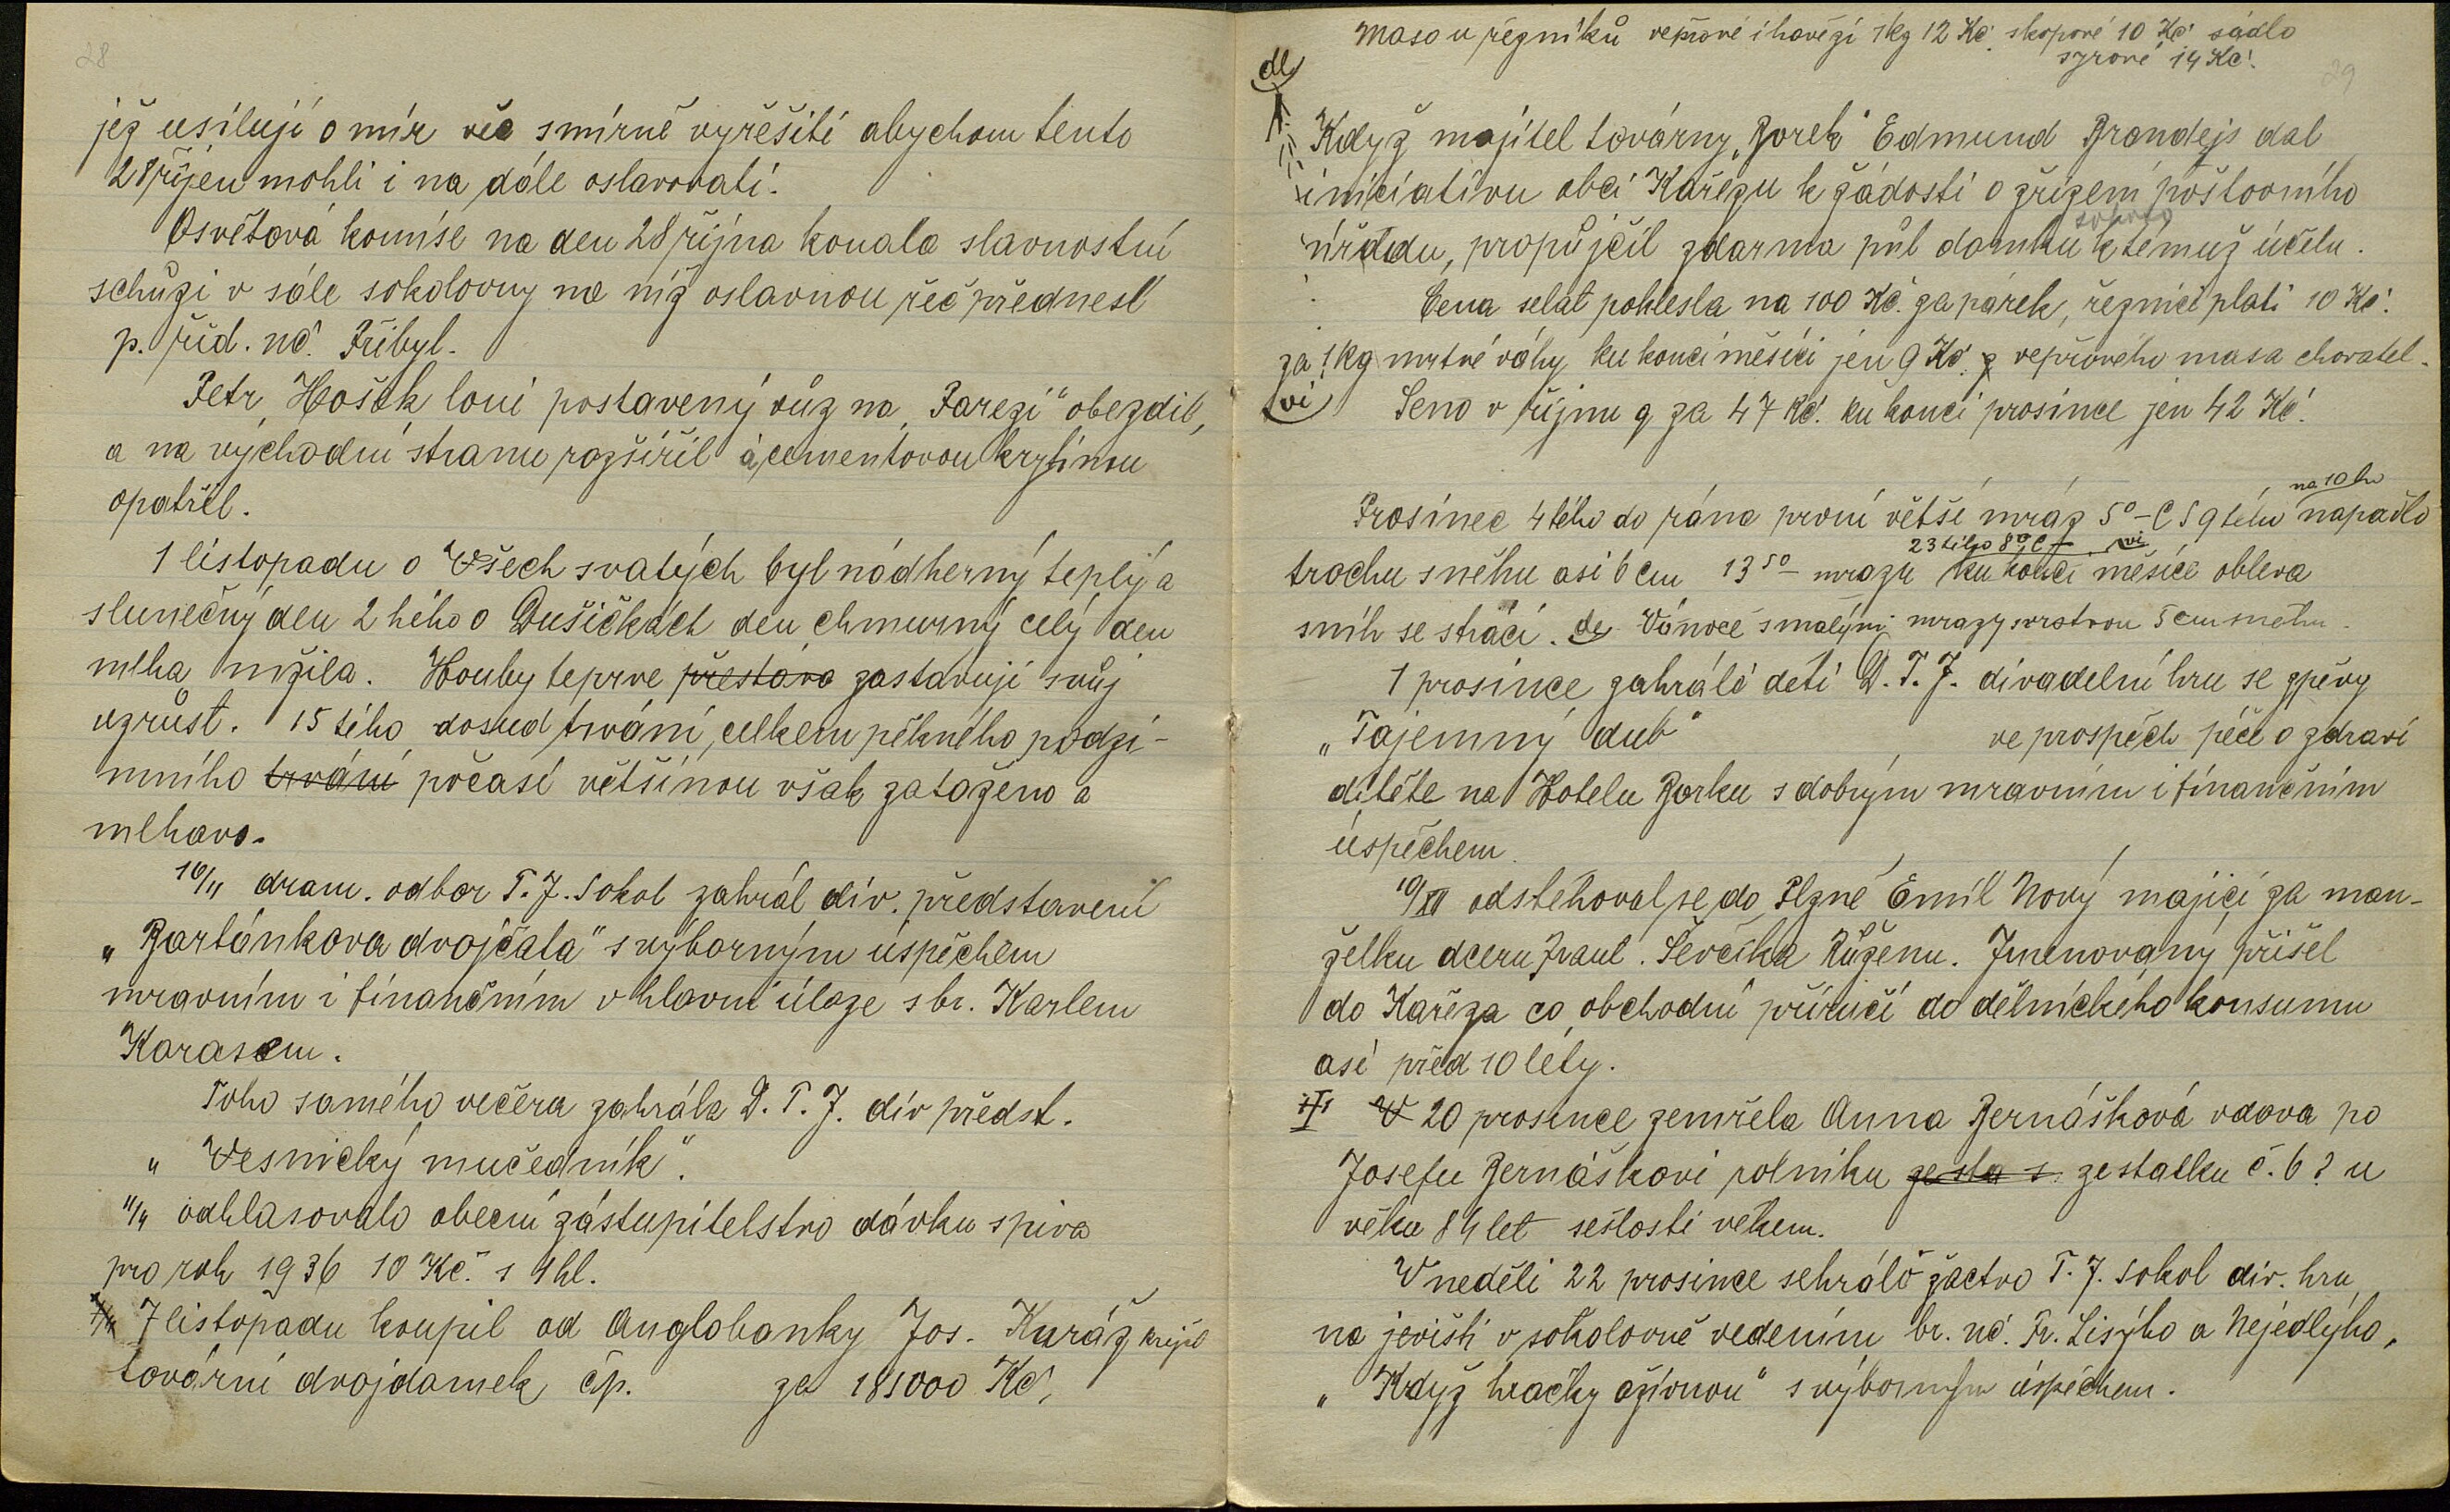 28
jež usilují o mír věc smírně vyřešiti abychom tento
28 říjen mohli i na dále oslavovati.
Osvětová komise na den 28 října konala slavnostní
schůzi v sále sokolovny na níž oslavnou řeč přednesl
p. říd. uč. Přibyl.
Petr Hošek loni postavený vůz na „Parezi" obezdil,
a na východní stranu rozšířil a cementovou krytinou
opatřil.
1 listopadu o Všech svatých byl nádherný teplý a
slunečný den 2 hého o Dušičkách den chmurný celý den
mlha mžila. Houby teprve přestáva zastavují svůj
vzrůst. 15 tého dosud trvání, celkem pěkného podzi-
mního trvání počasí většinou však zataženo a
mlhavo.
10/11 dram. odbor T. J. Sokol zahrál div. představení
„Bartánkova dvojčata" s výborným úspěchem
mravním i finančním v hlavní úloze s br. Karlem
Karasem.
Toho samého večera zahrála D. T. J. div předst.
„Vesnický mučedník".
11/11 odhlasovalo obecní zástupitelstvo dávku s piva
pro rok 1936 10 Kč. s 1 hl.
7 listopadu koupil od Anglobanky Jos. Kuráž krejčí
tovární dvojdomek čp. za 181000 Kč,
Maso u řezníků vepřové i hovězí 1kg 12 Kč. skopové 10 Kč sádlo
syrové 14 Kč.
29
de
Když majitel továrny „Borek" Edmund Brandejs dal
iniciativu obci Kařezu k žádosti o zřízení poštovního
úřadu, propůjčil zdarma půl domku k témuž účelu.
Cena selat poklesla na 100 Kč. za párek, řezníci platí 10 Kč.
za 1 kg mrtvé váhy ku konci měsíci jen 9 Kč. z vepřového masa chovatel-
vi Seno v říjnu q za 47 Kč. ku konci prosince jen 42 Kč.
na 10 cm
Prosinec 4 tého do rána první větší mráz 5° - C 5 9 tého napadlo
23 tího 8° C
trochu sněhu asi 6 cm 13 5° - mrazu ku konci měsíce obleva
sníh se strácí. de Vánoce s malými mrazy s vrstvou 5 cm sněhu.
1 prosince zahrálo děti D. T. J. divadelní hru se zpěvy
„Tajemný dub" ve prospěch péče o zdraví
dítěte na Hotelu Borku s dobrým mravním i finančním
úspěchem.
10/XII odstěhoval se do Plzně Emil Nový majíci za man-
želku dceru Frant. Ševčíka Růženu. Jmenovaný přišel
do Kařeza co obchodní příručí do dělnického konsumu
asi před 10 léty.
V 20 prosince zemřela Anna Bernášková vdova po
Josefu Bernáškovi rolníku ze sta s. ze statku č. 6? u
věku 84 let sešlostí věkem.
V neděli 22 prosince sehrálo žactvo T. J. Sokol div. hru
na jevišti v sokolovně vedením br. uč. Fr. Lisýho a Nejedlýho,
„Když hračky ožívnou" s výborným úspěchem.